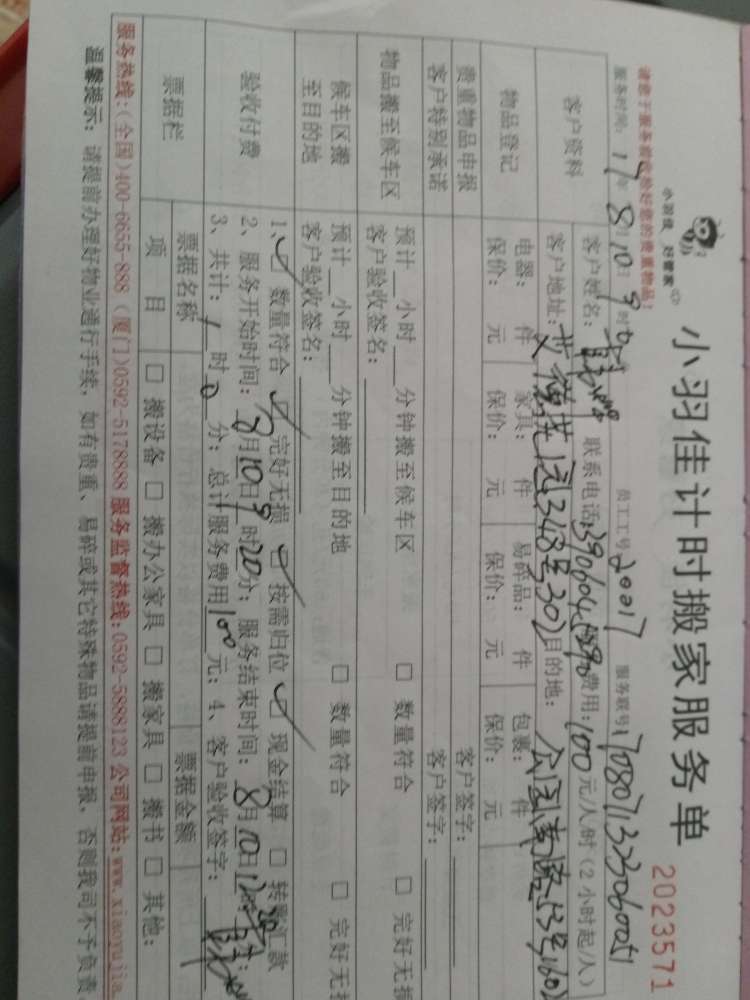 小羽佳 好管家
小羽佳计时搬家服务单
2023571
请您于服务前收拾好您的贵重物品!
服务时间: 17年8月10日9时 员工工号 20017 服务联号
客户资料
客户姓名: 联系电话: 费用:100元/人/时(2小时起/人)
客户地址: 348号302 目的地:
物品登记
电器: 件 家具: 件 易碎品: 件 包裹: 件
保价: 元 保价: 元 保价: 元 保价: 元
贵重物品申报 客户签字:
客户特别承诺 客户签字:
物品搬至候车区
预计__小时__分钟搬至候车区 □ 数量符合 □ 完好无损
客户验收签名:
候车区搬至目的地
预计__小时__分钟搬至目的地 □ 数量符合 □ 完好无损
客户验收签名:
验收付费
1、☑ 数量符合 ☑ 完好无损 ☑ 按需归位 ☑ 现金结算 □ 转账汇款
2、服务开始时间:8月10日9时20分; 服务结束时间:8月10日
3、共计:1时0分; 总计服务费用100元; 4、客户验收签字:
票据栏
票据名称 票据金额
项目 □ 搬设备 □ 搬办公家具 □ 搬家具 □ 搬书 □ 其他:
服务热线:(全国)400-6655-888 (厦门)0592-5178888 服务监督热线:0592-5888123 公司网站:www.xiaoyujia.
温馨提示: 请提前办理好物业通行手续, 如有贵重、易碎或其它特殊物品请提前申报, 否则我司不予负责